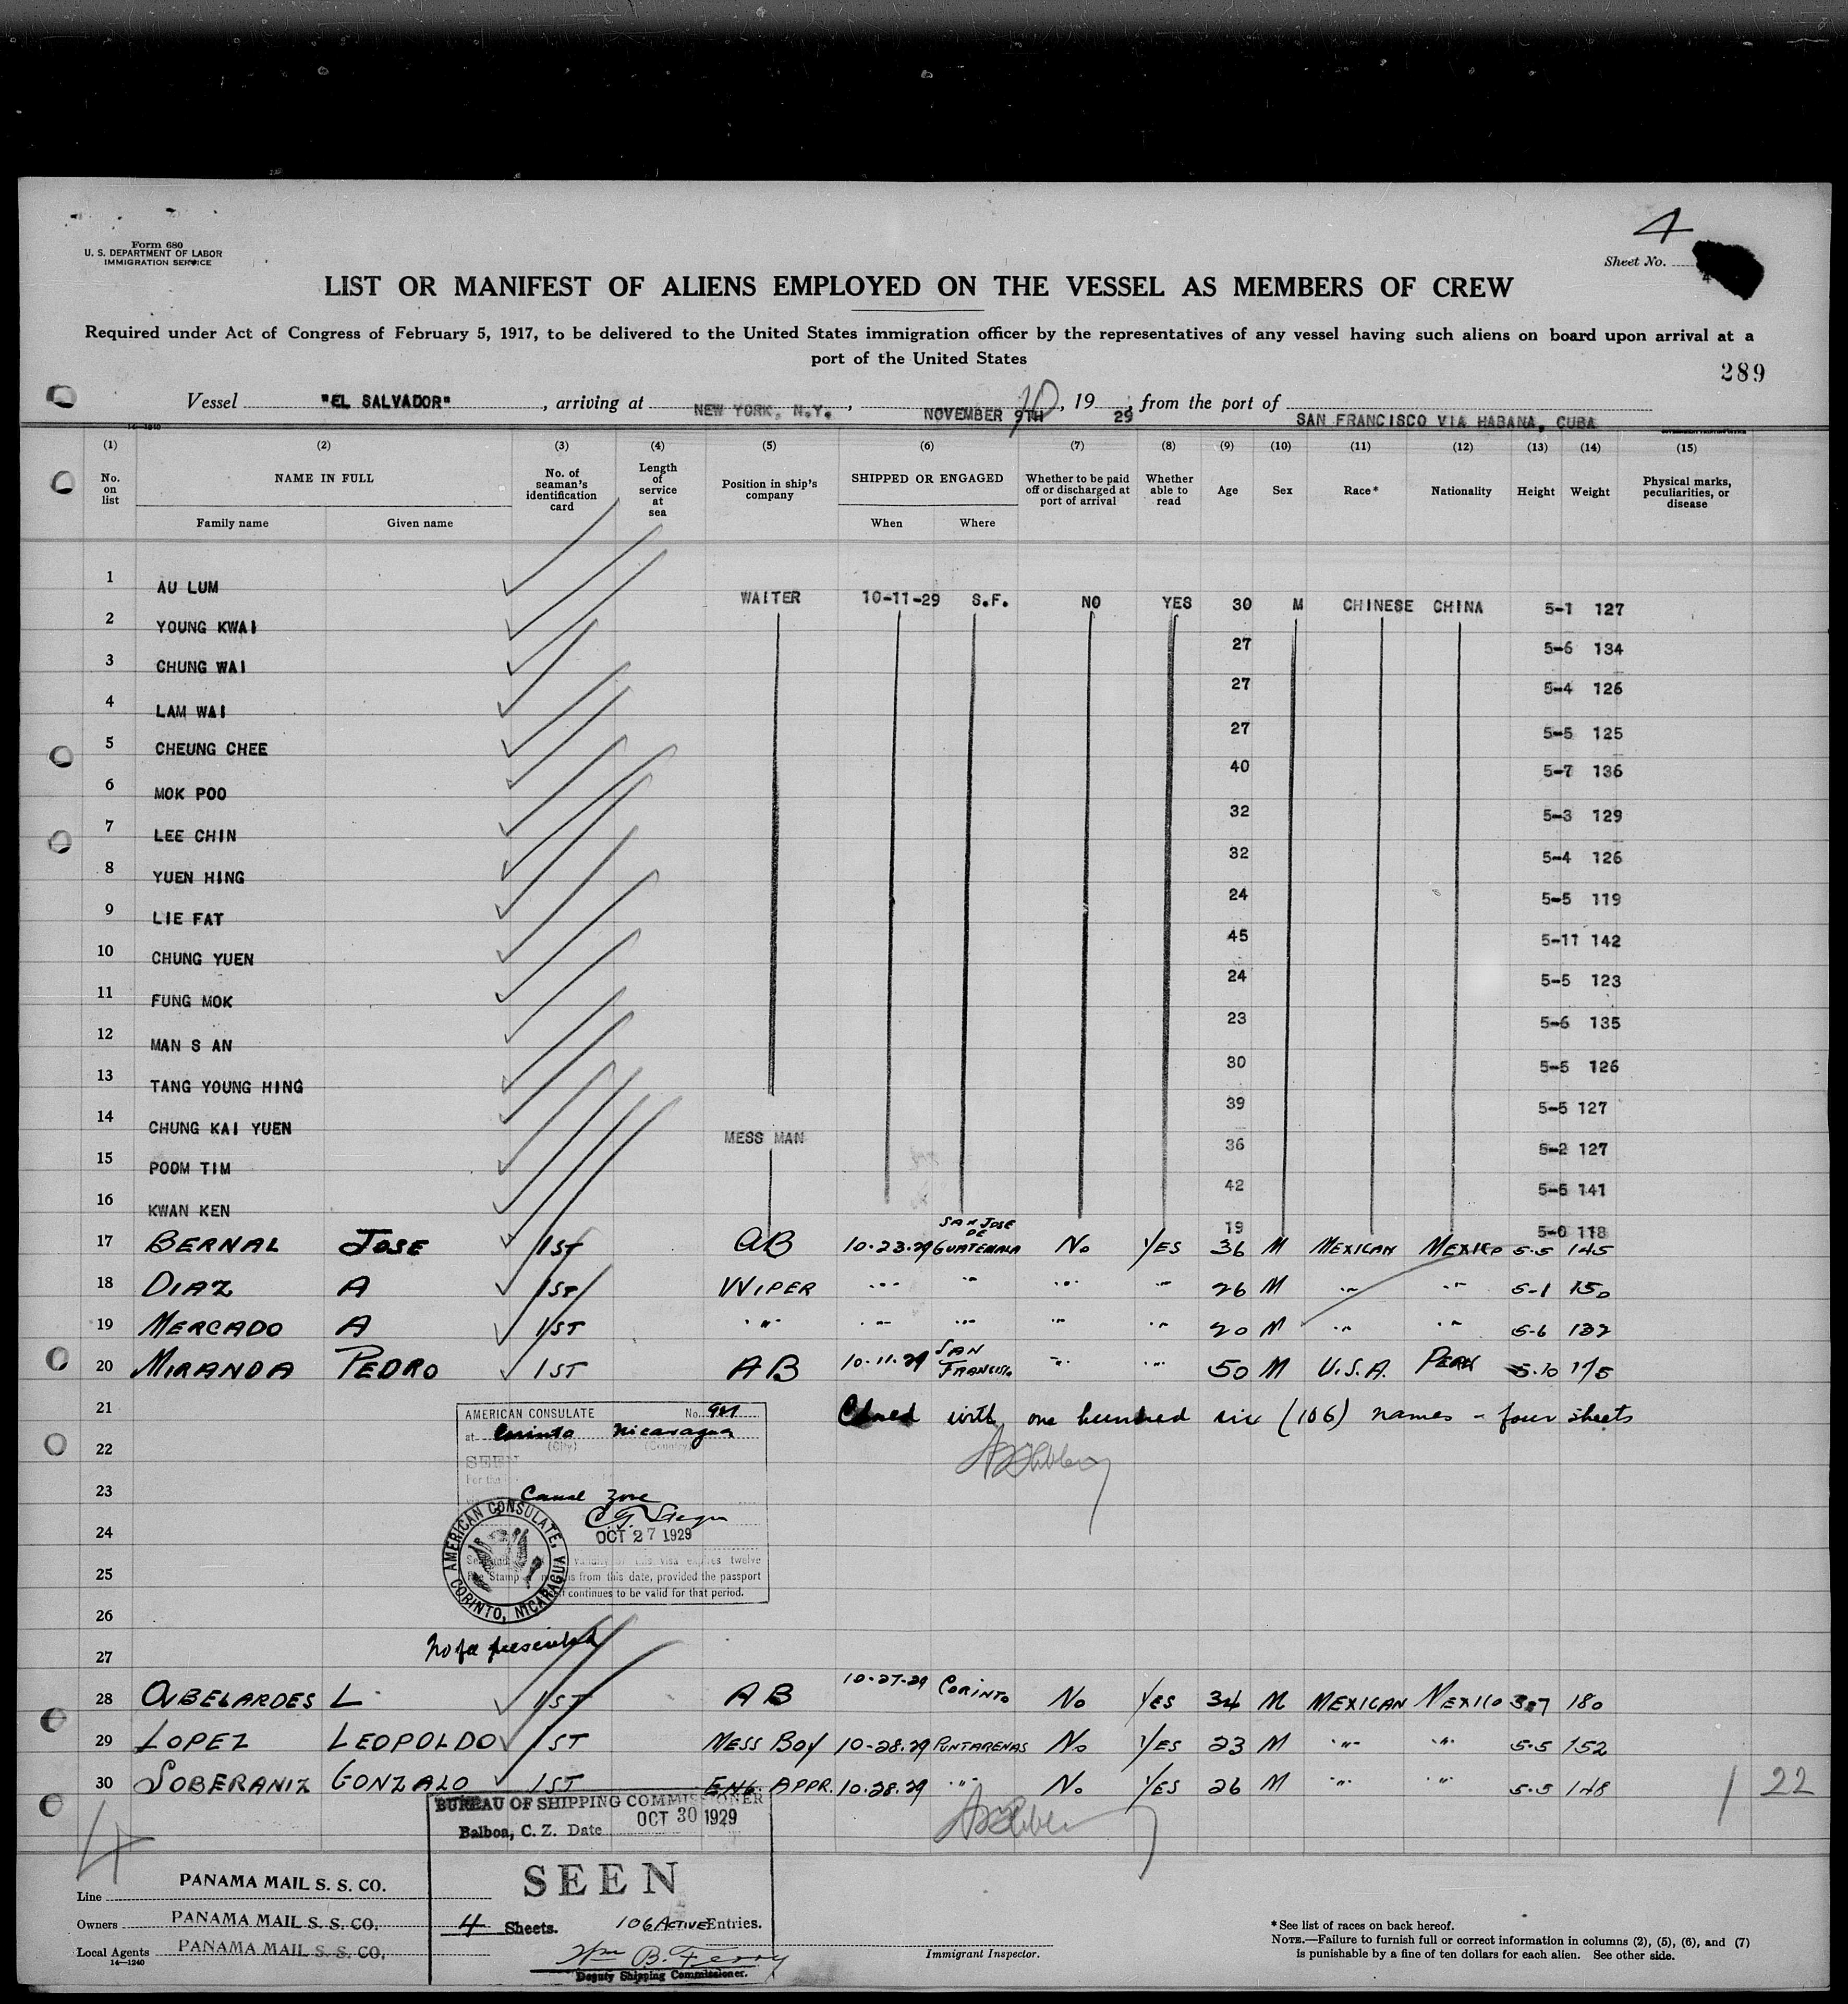 Form 680
U. S. DEPARTMENT OF LABOR
IMMIGRATION SERVICE
4
Sheet No.
LIST OR MANIFEST OF ALIENS EMPLOYED ON THE VESSEL AS MEMBERS OF CREW
Required under Act of Congress of February 5, 1917, to be delivered to the United States immigration officer by the representatives of any vessel having such aliens on board upon arrival at a
port of the United States
289
Vessel "EL SALVADOR", arriving at NEW YORK, N.Y., NOVEMBER 9TH 10, 19 29, from the port of SAN FRANCISCO VIA HABANA, CUBA
14-1240
(1) (2) (3) (4) (5) (6) (7) (8) (9) (10) (11) (12) (13) (14) (15)
No. on list NAME IN FULL No. of seaman's identification card Length of service at sea Position in ship's company SHIPPED OR ENGAGED Whether to be paid off or discharged at port of arrival Whether able to read Age Sex Race* Nationality Height Weight Physical marks, peculiarities, or disease
Family name Given name When Where
1 AU LUM WAITER 10-11-29 S.F. NO YES 30 M CHINESE CHINA 5-1 127
2 YOUNG KWAI 27 5-6 134
3 CHUNG WAI 27 5-4 126
4 LAM WAI 27 5-5 125
5 CHEUNG CHEE 40 5-7 136
6 MOK POO 32 5-3 129
7 LEE CHIN 32 5-4 126
8 YUEN HING 24 5-5 119
9 LIE FAT 45 5-11 142
10 CHUNG YUEN 24 5-5 123
11 FUNG MOK 23 5-6 135
12 MAN S AN 30 5-5 126
13 TANG YOUNG HING 39 5-5 127
14 CHUNG KAI YUEN MESS MAN 36 5-2 127
15 POOM TIM 42 5-5 141
16 KWAN KEN 19 5-0 118
17 BERNAL JOSE 1ST AB 10-23-29 SAN JOSE DE GUATEMALA No YES 36 M MEXICAN MEXICO 5-5 145
18 DIAZ A 1ST WIPER " " " " 26 M " " 5-1 150
19 MERCADO A 1ST " " " " " 20 M " " 5-6 132
20 MIRANDA PEDRO 1ST AB 10-11-29 SAN FRANCISCO " " 50 M U.S.A. PERU 5-10 175
21 Closed with one hundred six (106) names - four sheets
AMERICAN CONSULATE No. 941
at Corinto Nicaragua
(City) (Country)
22
SEEN
For the
23
Canal Zone
24
OCT 27 1929
validity of this visa expires twelve
25
Stamp from this date, provided the passport
continues to be valid for that period.
AMERICAN CONSULATE, CORINTO, NICARAGUA
26
No fee presented
27
28 ABELARDES L. 1ST AB 10-27-29 CORINTO No YES 34 M MEXICAN MEXICO 5-7 180
29 LOPEZ LEOPOLDO 1ST MESS BOY 10-28-29 PUNTARENAS No YES 23 M " " 5-5 152
30 SOBERANIZ GONZALO 1ST ENG. APPR. 10-28-29 " No YES 26 M " " 5-5 148
1 22
BUREAU OF SHIPPING COMMISSIONER
Balboa, C. Z. Date OCT 30 1929
4
SEEN
4 Sheets. 106 ACTIVE Entries.
Wm B. Ferry
Deputy Shipping Commissioner.
Line PANAMA MAIL S. S. CO.
Owners PANAMA MAIL S. S. CO.
Local Agents PANAMA MAIL S. S. CO.
14—1240
Immigrant Inspector.
* See list of races on back hereof.
NOTE.—Failure to furnish full or correct information in columns (2), (5), (6), and (7)
is punishable by a fine of ten dollars for each alien. See other side.